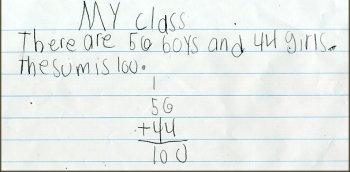 MY class
There are 56 boys and 44 girls.
The sum is 100.
1
56
+44
100